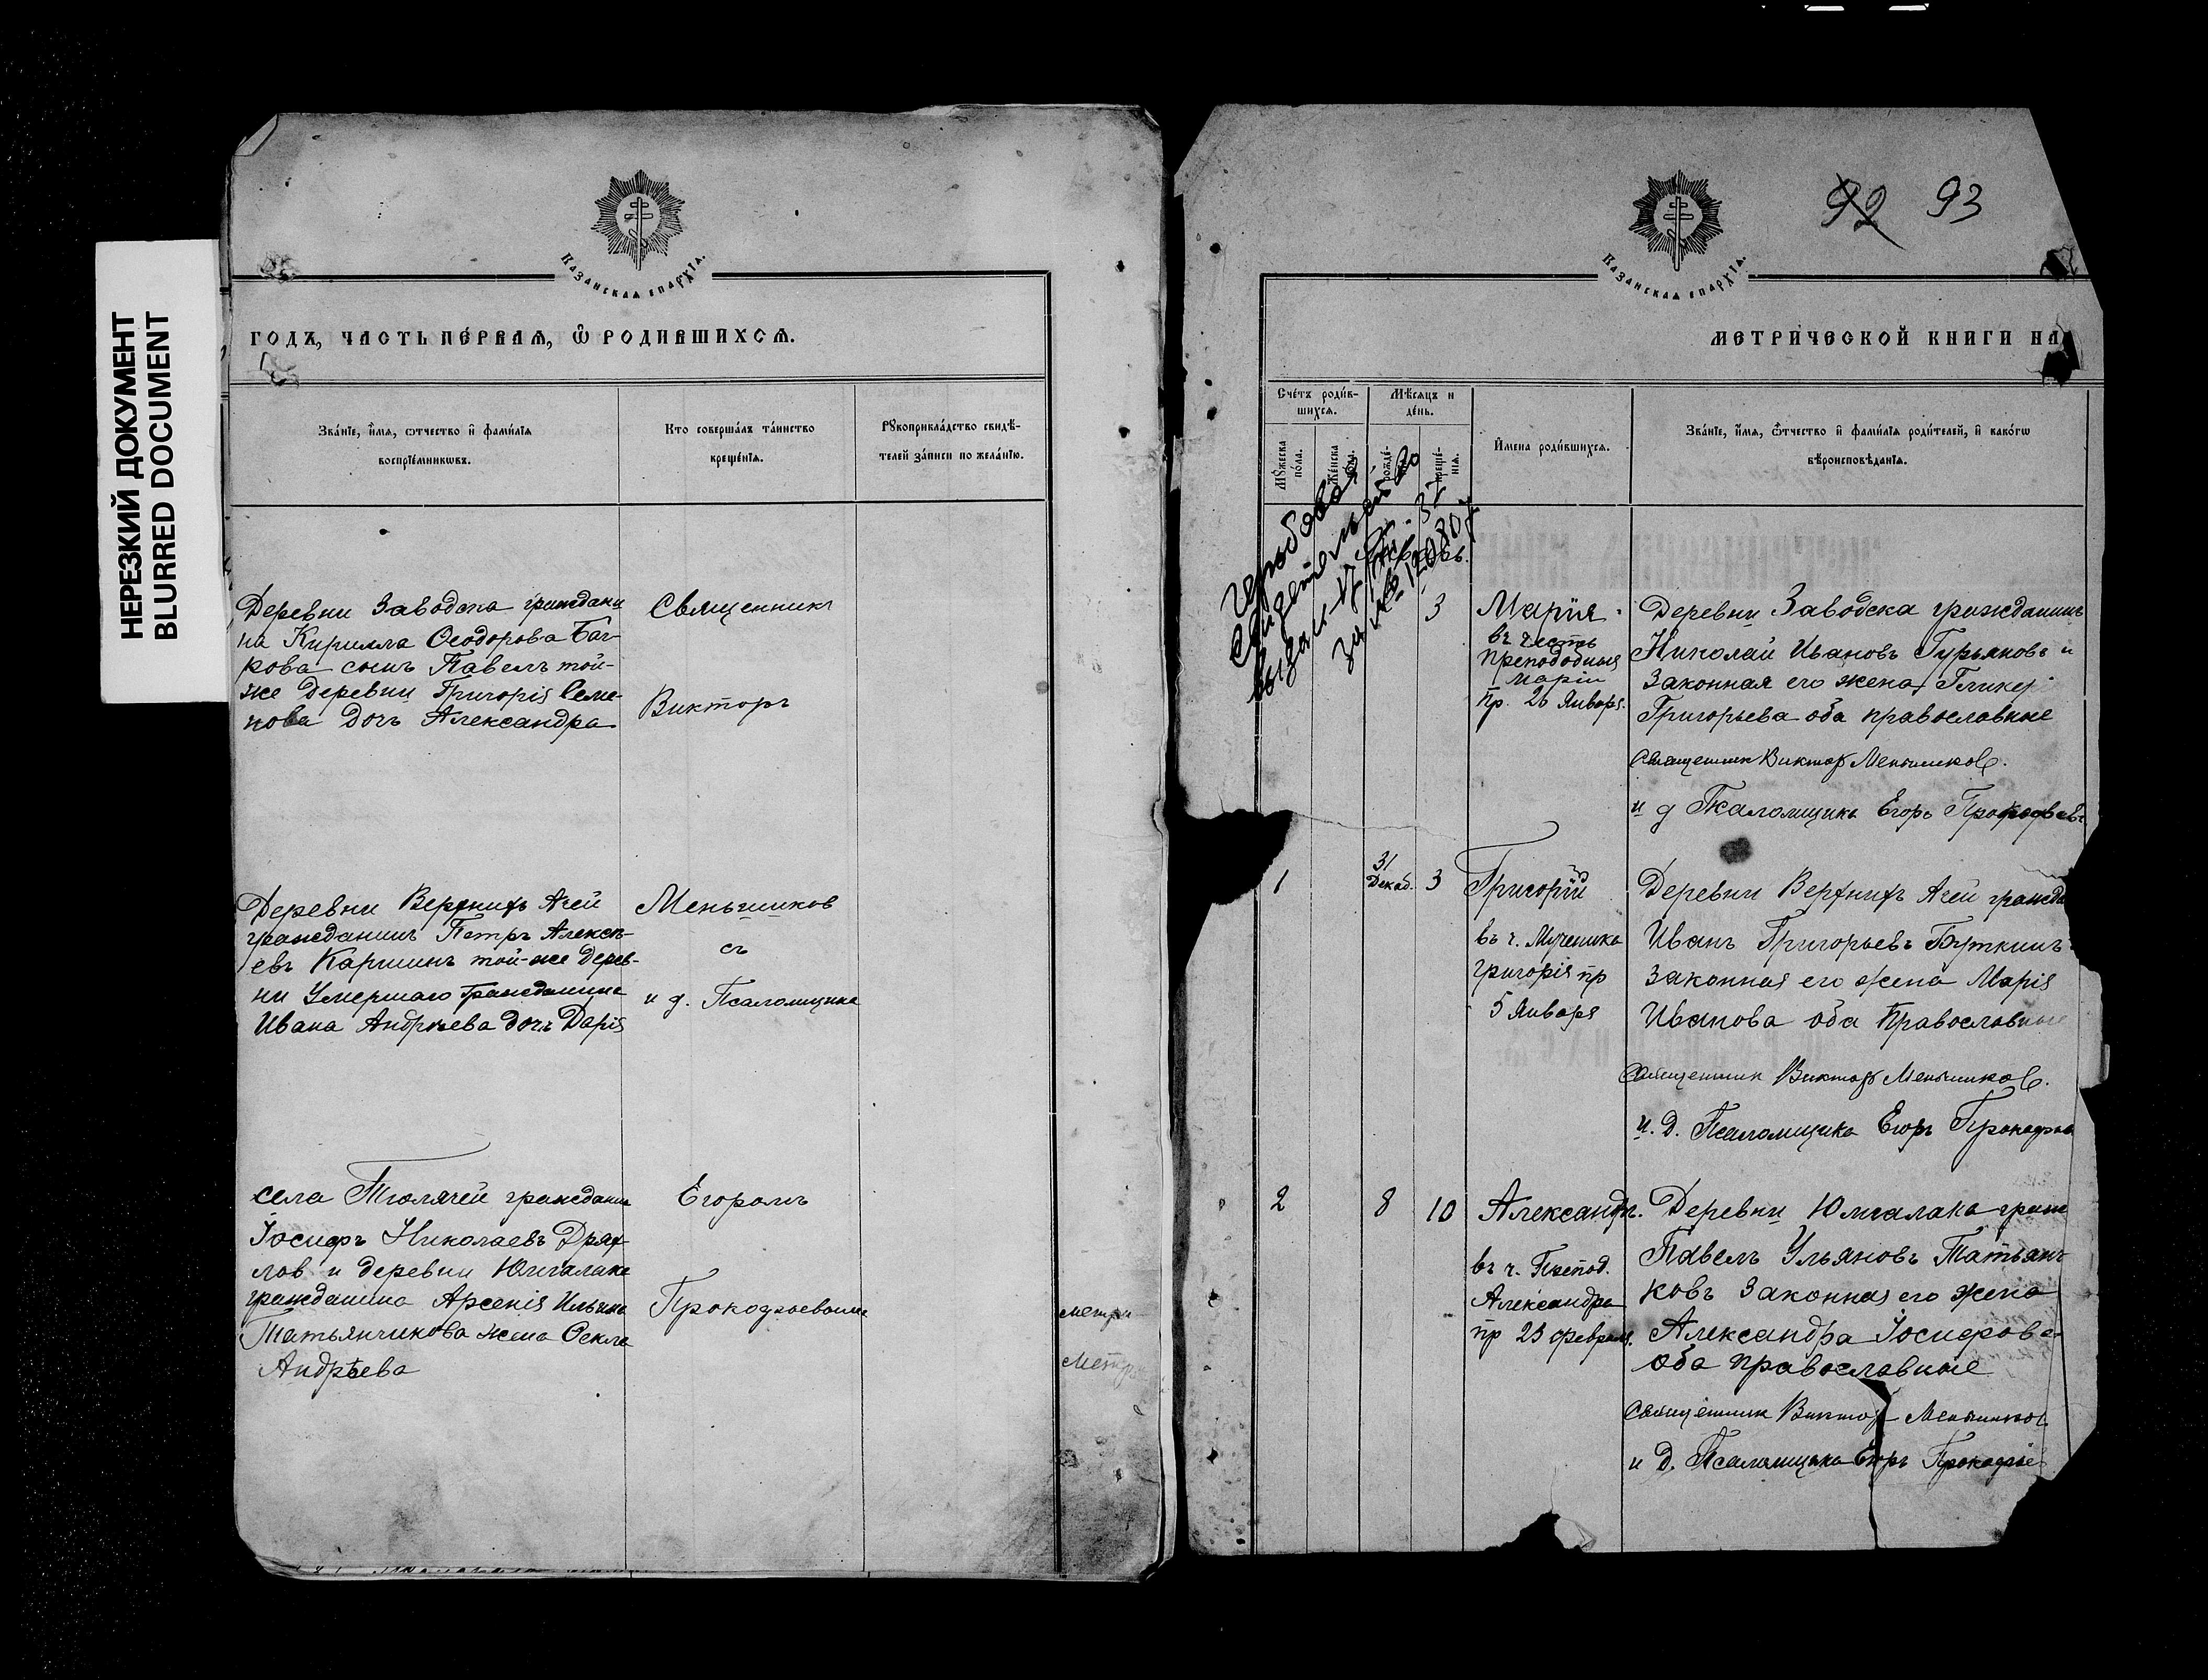 НЕРЕЗКИЙ ДОКУМЕНТ
BLURRED DOCUMENT
КАЗАНСКАЯ ЕПАРХІЯ.
ГОДЪ, ЧАСТЬ ПЕ́РВАЯ, Ѿ РОДИВШИХСЯ.
Зва́нїе, и҆́мѧ, ѻтчество и҆ фами́лїѧ
воспрїе́мникѡвъ.
Кто соверша́лъ та́инство
креще́нїѧ.
Рꙋкоприкла́дство свидѣ́-
телей за́писи по жела́нїю.
Деревни Заводска граждани
на Кирилла Ѳеодорова Баг-
рова сынъ Павелъ той-
же Деревни Григорія Семе-
нова Дочь Александра
Священникъ
Викторъ
Деревни Верхнихъ Ачей
гражданинъ Петръ Алексѣ-
евъ Каришинъ той-же Дерев-
ни Умершаго Гражданина
Ивана Андрѣева дочь Дарія
Меньшиковъ
съ
и д. Псаломщика
села Тюлячей гражданинъ
Іосифъ Николаевъ Дрях-
ловъ и деревни Юмгалака
гражданина Арсенія Ильина
Татьянчикова жена Ѳекла
Андрѣева
Егоромъ
Прокофьевымъ
метри
Метр
92 93
КАЗАНСКАЯ ЕПАРХІЯ.
МЕТРИЧЕСКОЙ КНИГИ НА
Сче́тъ роди́в-
шихсѧ.
Мѣ́сѧцъ и
де́нь.
Мꙋжеска
по́ла.
Же́нска
рожде́-
креще́-
нїѧ.
И҆мена роди́вшихсѧ.
Зва́нїе, и҆́мѧ, ѻтчество и҆ фами́лїѧ роди́телей, и҆ како́гѡ
вѣроисповѣ́данїѧ.
гербовое
свидетельство
выдан
за № 120807
3
Марія
въ честь
преподобныя
Маріи
пр. 26 Января.
Деревни Заводска гражданинъ
Николай Ивановъ Гурьяновъ и
Законная его жена Гликері
Григорьева оба православные
Священник Виктор Меньшиков.
и д Псаломщика Егоръ Прокофьевъ
1
31
Декаб.
3
Григорій
въ ч. Мученика
Григорія пр
5 Января
Деревни Верхнихъ Ачей гражда
Иванъ Григорьевъ Буткинъ
Законная его жена Марія
Иванова оба Православные
Священник Виктор Меньшиков.
и. д. Псаломщика Егоръ Прокофьев
2
8
10
Александръ.
въ ч. Препод.
Александра
пр 23 февраля.
Деревни Юмгалака граж
Павелъ Ульяновъ Татьянч
ковъ Законная его жена
Александра Іосифова
оба православные
Священник Виктор Меньшиков
и Д. Псаломщика Егоръ Прокофье